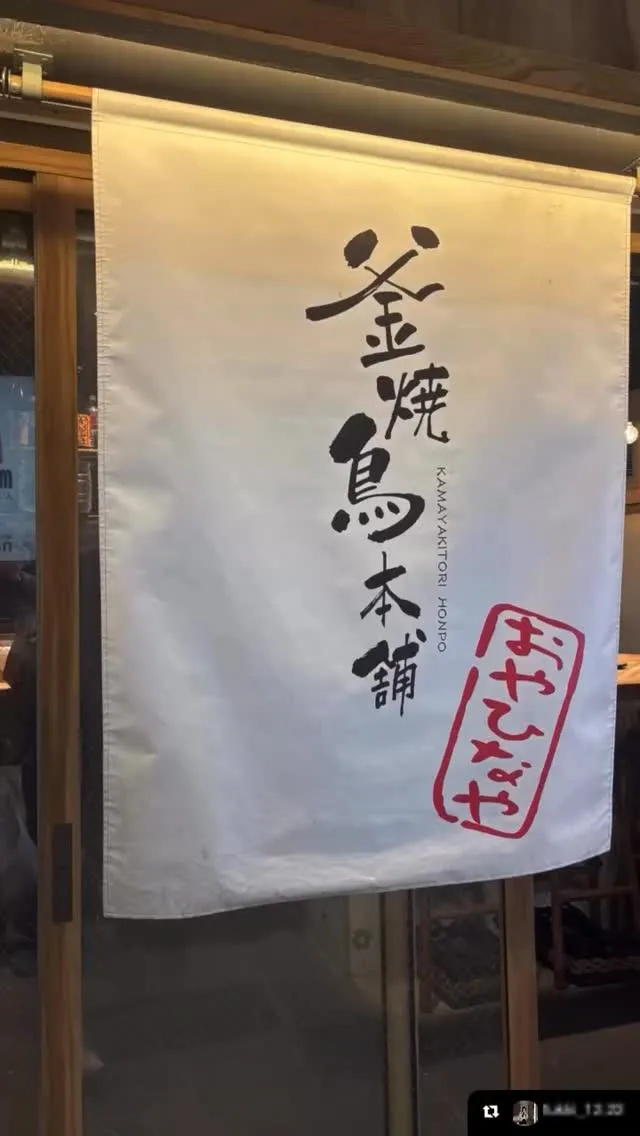 釜焼鳥本舗
KAMAYAKITORI HONPO
おやひなや